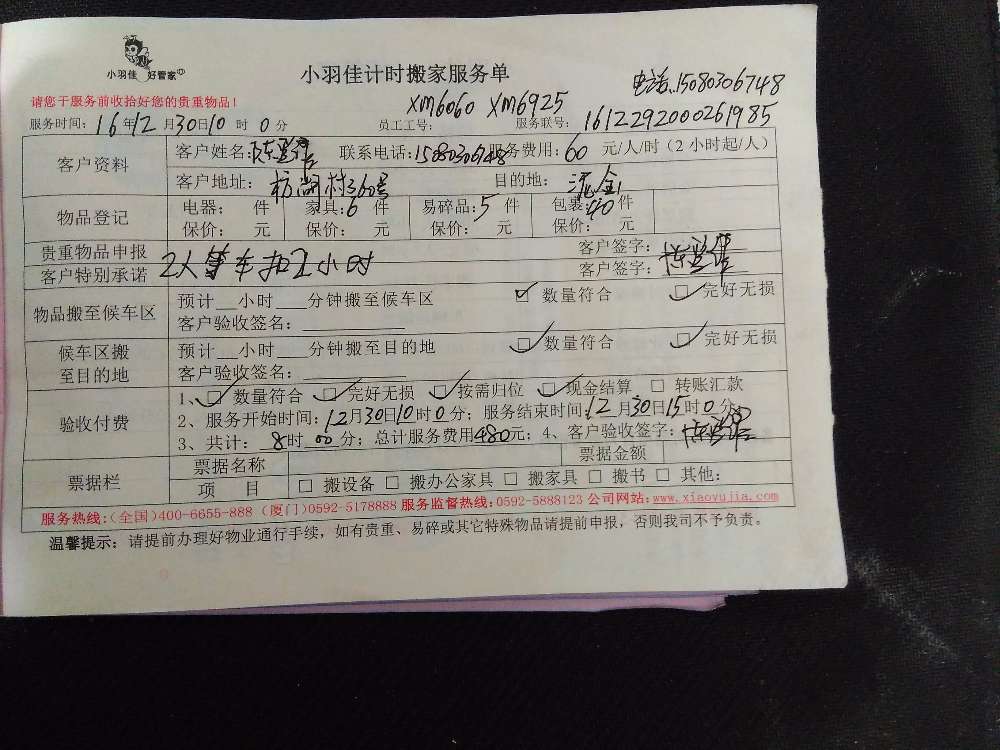 小羽佳 好管家
小羽佳计时搬家服务单
电话:15080306748
请您于服务前收拾好您的贵重物品!
XM6060 XM6925
服务时间: 16年12月30日10时0分 员工工号: 服务联号: 1612292000261985
客户资料 客户姓名: 陈 联系电话: 15080306748 服务费用: 60 元/人/时(2小时起/人)
客户地址: 村360号 目的地:
物品登记 电器: 件 家具: 6 件 易碎品: 5 件 包装: 40 件
保价: 元 保价: 元 保价: 元 保价: 元
贵重物品申报 客户签字:
客户特别承诺 2人等车扣2小时 客户签字: 陈
物品搬至候车区 预计__小时___分钟搬至候车区 ☑ 数量符合 ☑ 完好无损
客户验收签名:
候车区搬至目的地 预计__小时___分钟搬至目的地 ☑ 数量符合 ☑ 完好无损
客户验收签名:
验收付费 1、☑ 数量符合 ☑ 完好无损 ☑ 按需归位 ☑ 现金结算 □ 转账汇款
2、服务开始时间: 12月30日10时0分; 服务结束时间: 12月30日15时00分
3、共计: 8时00分; 总计服务费用480元; 4、客户验收签字: 陈
票据栏 票据名称 票据金额
项 目 □ 搬设备 □ 搬办公家具 □ 搬家具 □ 搬书 □ 其他:
服务热线:(全国)400-6655-888 (厦门)0592-5178888 服务监督热线:0592-5888123 公司网站:www.xiaoyujia.com
温馨提示: 请提前办理好物业通行手续,如有贵重、易碎或其它特殊物品请提前申报,否则我司不予负责。